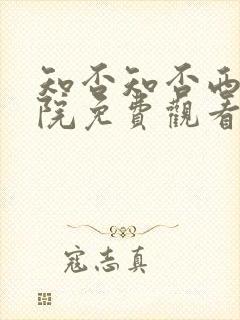 知否知否西
院免費觀看
寇志真